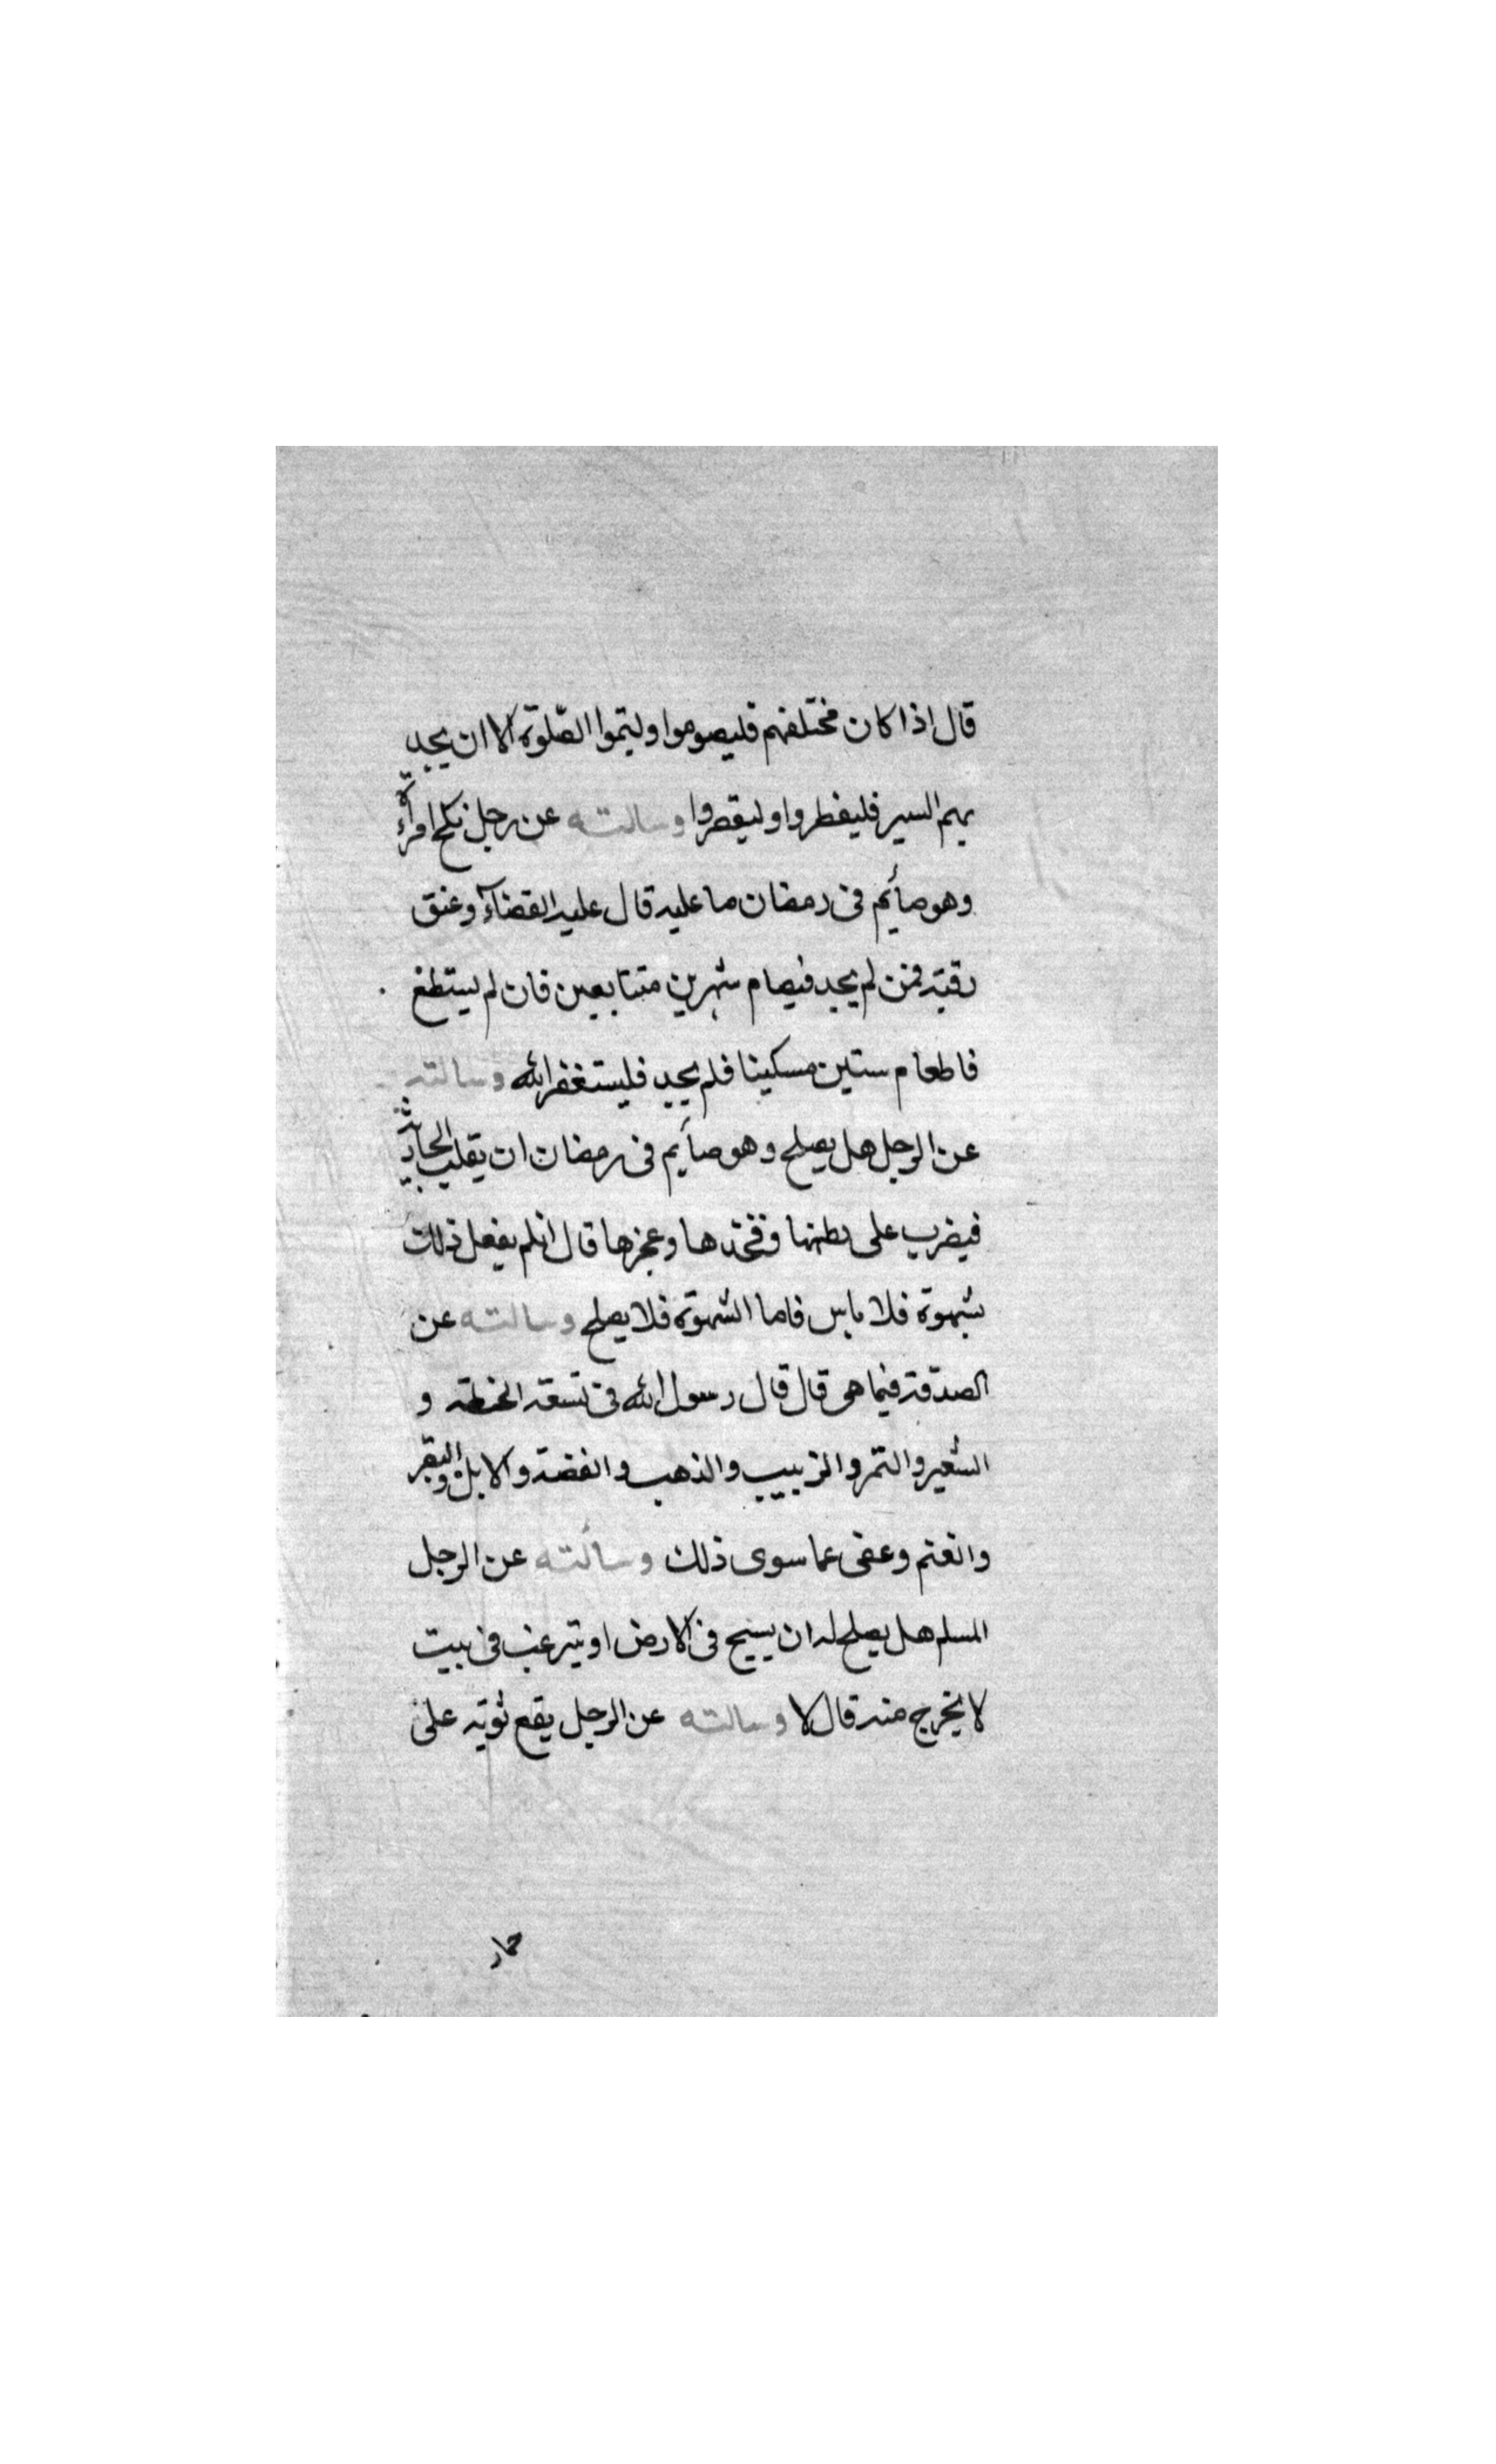 قال اذا كان مختلفهم فليصوموا وليتموا الصّلوة الا ان يجد
بهم السير فليفطروا وليقصروا وسالته عن رجل نكح امرأة
وهو صائم فى رمضان ما عليه قال عليه القضآء وعتق
رقبة فمن لم يجد فصيام شهرين متتابعين فان لم يستطع
فاطعام ستين مسكينا فلم يجد فليستغفر الله وسالته
عن الرجل هل يصلح وهو صائم فى رمضان ان يقلب الجارية
فيضرب على بطنها وفخذها وعجزها قال ان لم يفعل ذلك
بشهوة فلا باس فاما الشهوة فلا يصلح وسالته عن
الصدقة فيما هى قال قال رسول الله فى تسعة الحنطة و
الشعير والتمر والزبيب والذهب والفضة والابل والبقر
والغنم وعفى عما سوى ذلك وسألته عن الرجل
المسلم هل يصلح له ان يسيح فى الارض او يترهب فى بيت
لا يخرج منه قال لا وسالته عن الرجل يقع ثوبه على
حمار